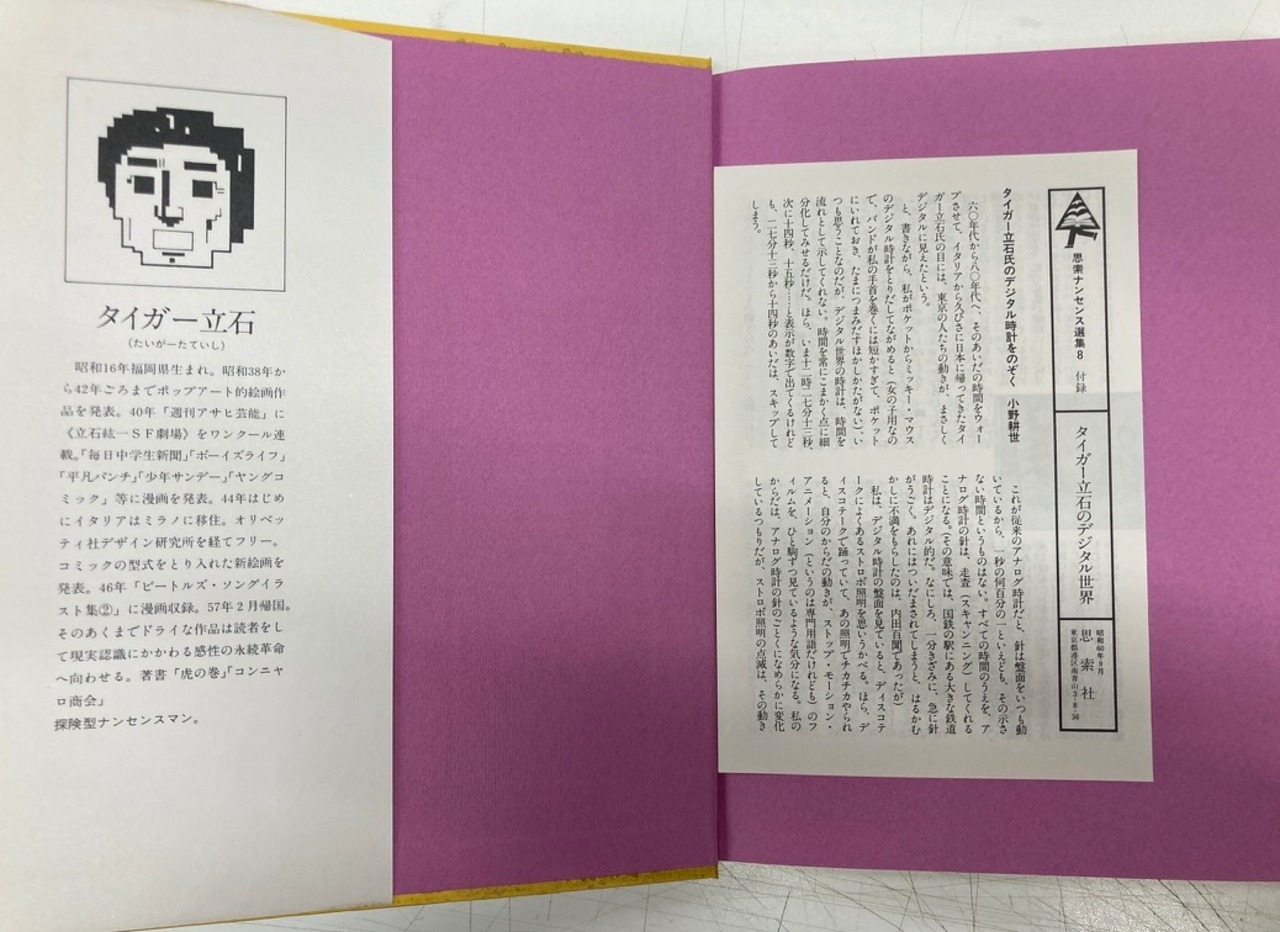 タイガー立石
(たいがーたていし)
昭和16年福岡県生まれ。昭和38年か
ら42年ごろまでポップアート的絵画作
品を発表。40年「週刊アサヒ芸能」に
《立石紘一SF劇場》をワンクール連
載。「毎日中学生新聞」「ボーイズライフ」
「平凡パンチ」「少年サンデー」「ヤングコ
ミック」等に漫画を発表。44年はじめ
にイタリアはミラノに移住。オリベッ
ティ社デザイン研究所を経てフリー。
コミックの型式をとり入れた新絵画を
発表。46年「ビートルズ・ソングイラ
スト集②」に漫画収録。57年2月帰国。
そのあくまでドライな作品は読者をし
て現実認識にかかわる感性の永続革命
へ向わせる。著書「虎の巻」「コンニャ
ロ商会」
探険型ナンセンスマン。
思索ナンセンス選集8 付録
タイガー立石のデジタル世界
昭和60年9月
思索社
東京都港区南青山3-8-36
タイガー立石氏のデジタル時計をのぞく 小野耕世
六〇年代から八〇年代へ、そのあいだの時間をウォー
プさせて、イタリアから久びさに日本に帰ってきたタイ
ガー立石氏の目には、東京の人たちの動きが、まさしく
デジタルに見えたという。
と、書きながら、私がポケットからミッキー・マウス
のデジタル時計をとりだしてながめると(女の子用なの
で、バンドが私の手首を巻くには短かすぎて、ポケット
にいれておき、たまにつまみだすほかしかたがない)、い
つも思うことなのだが、デジタル世界の時計は、時間を
流れとして示してくれない。時間を常にこまかく点に細
分化してみせるだけだ。ほら、いま十二時二七分十三秒、
次に十四秒、十五秒……と表示が数字で出てくるけれど
も、二七分十三秒から十四秒のあいだは、スキップして
しまう。
これが従来のアナログ時計だと、針は盤面をいつも動
いているから、一秒の何百分の一といえども、その示さ
ない時間というものはない。すべての時間のうえを、ア
ナログ時計の針は、走査(スキャンニング)してくれる
ことになる。(その意味では、国鉄の駅にある大きな鉄道
時計はデジタル的だ。なにしろ、一分きざみに、急に針
がうごく。あれにはついだまされてしまうと、はるかむ
かしに不満をもらしたのは、内田百閒であったが)
私は、デジタル時計の盤面を見ていると、ディスコテ
ークによくあるストロボ照明を思いうかべる。ほら、デ
ィスコテークで踊っていて、あの照明でチカチカやられ
ると、自分のからだの動きが、ストップ・モーション・
アニメーション(というのは専門用語だけれども)のフ
ィルムを、ひと駒ずつ見ているような気分になる。私の
からだは、アナログ時計の針のごとくになめらかに変化
しているつもりだが、ストロボ照明の点滅は、その動き